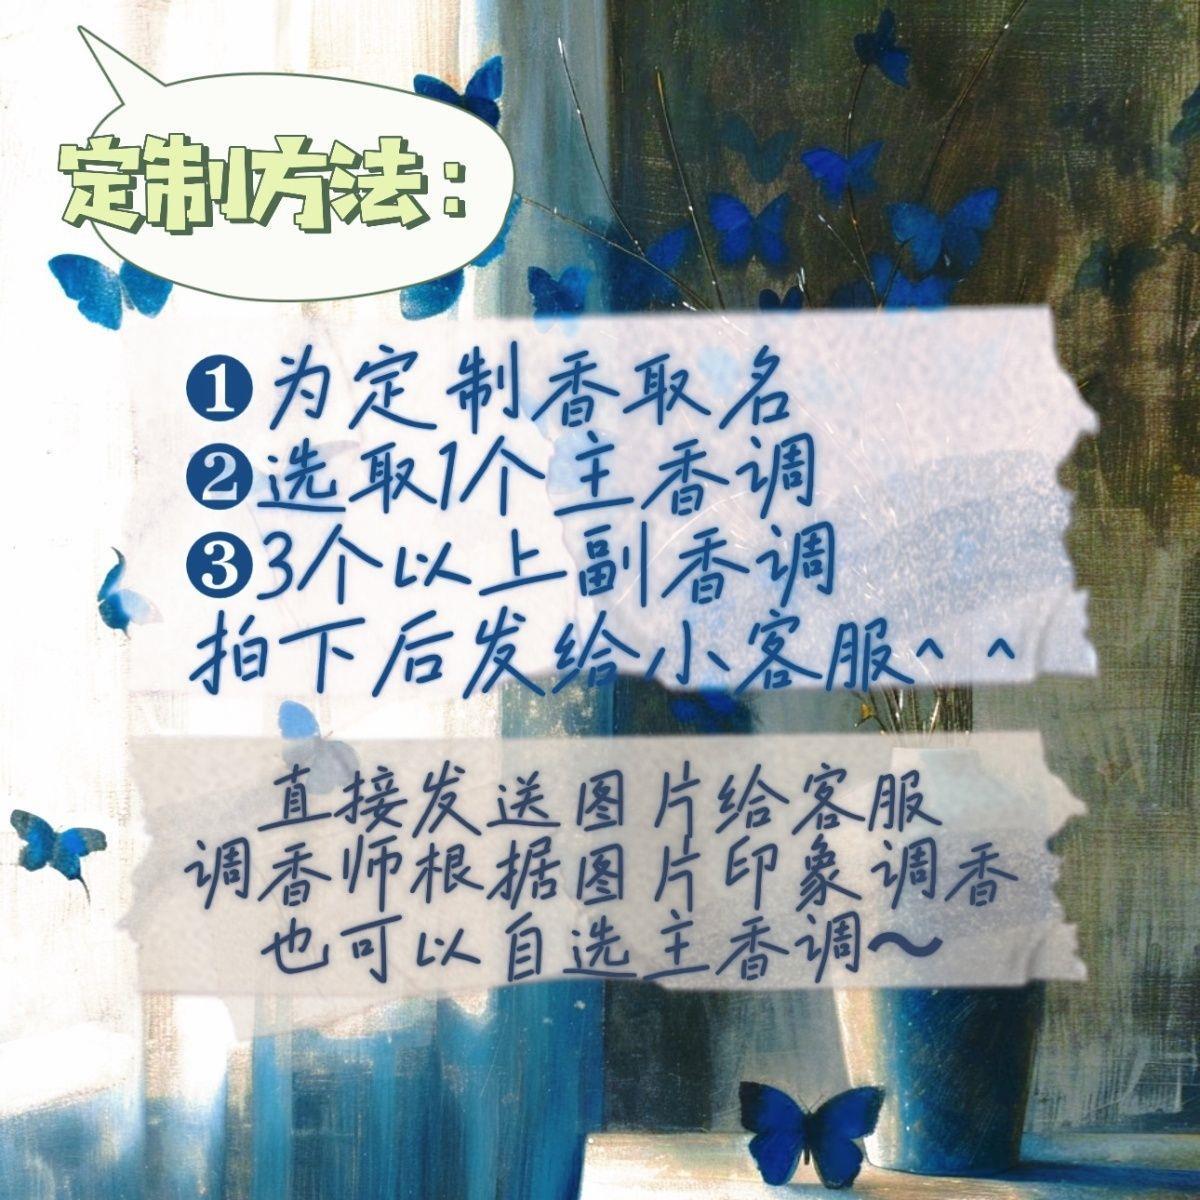 定制方法：
❶为定制香取名
❷选取1个主香调
❸3个以上副香调
拍下后发给小客服^ ^
直接发送图片给客服
调香师根据图片印象调香
也可以自选主香调～